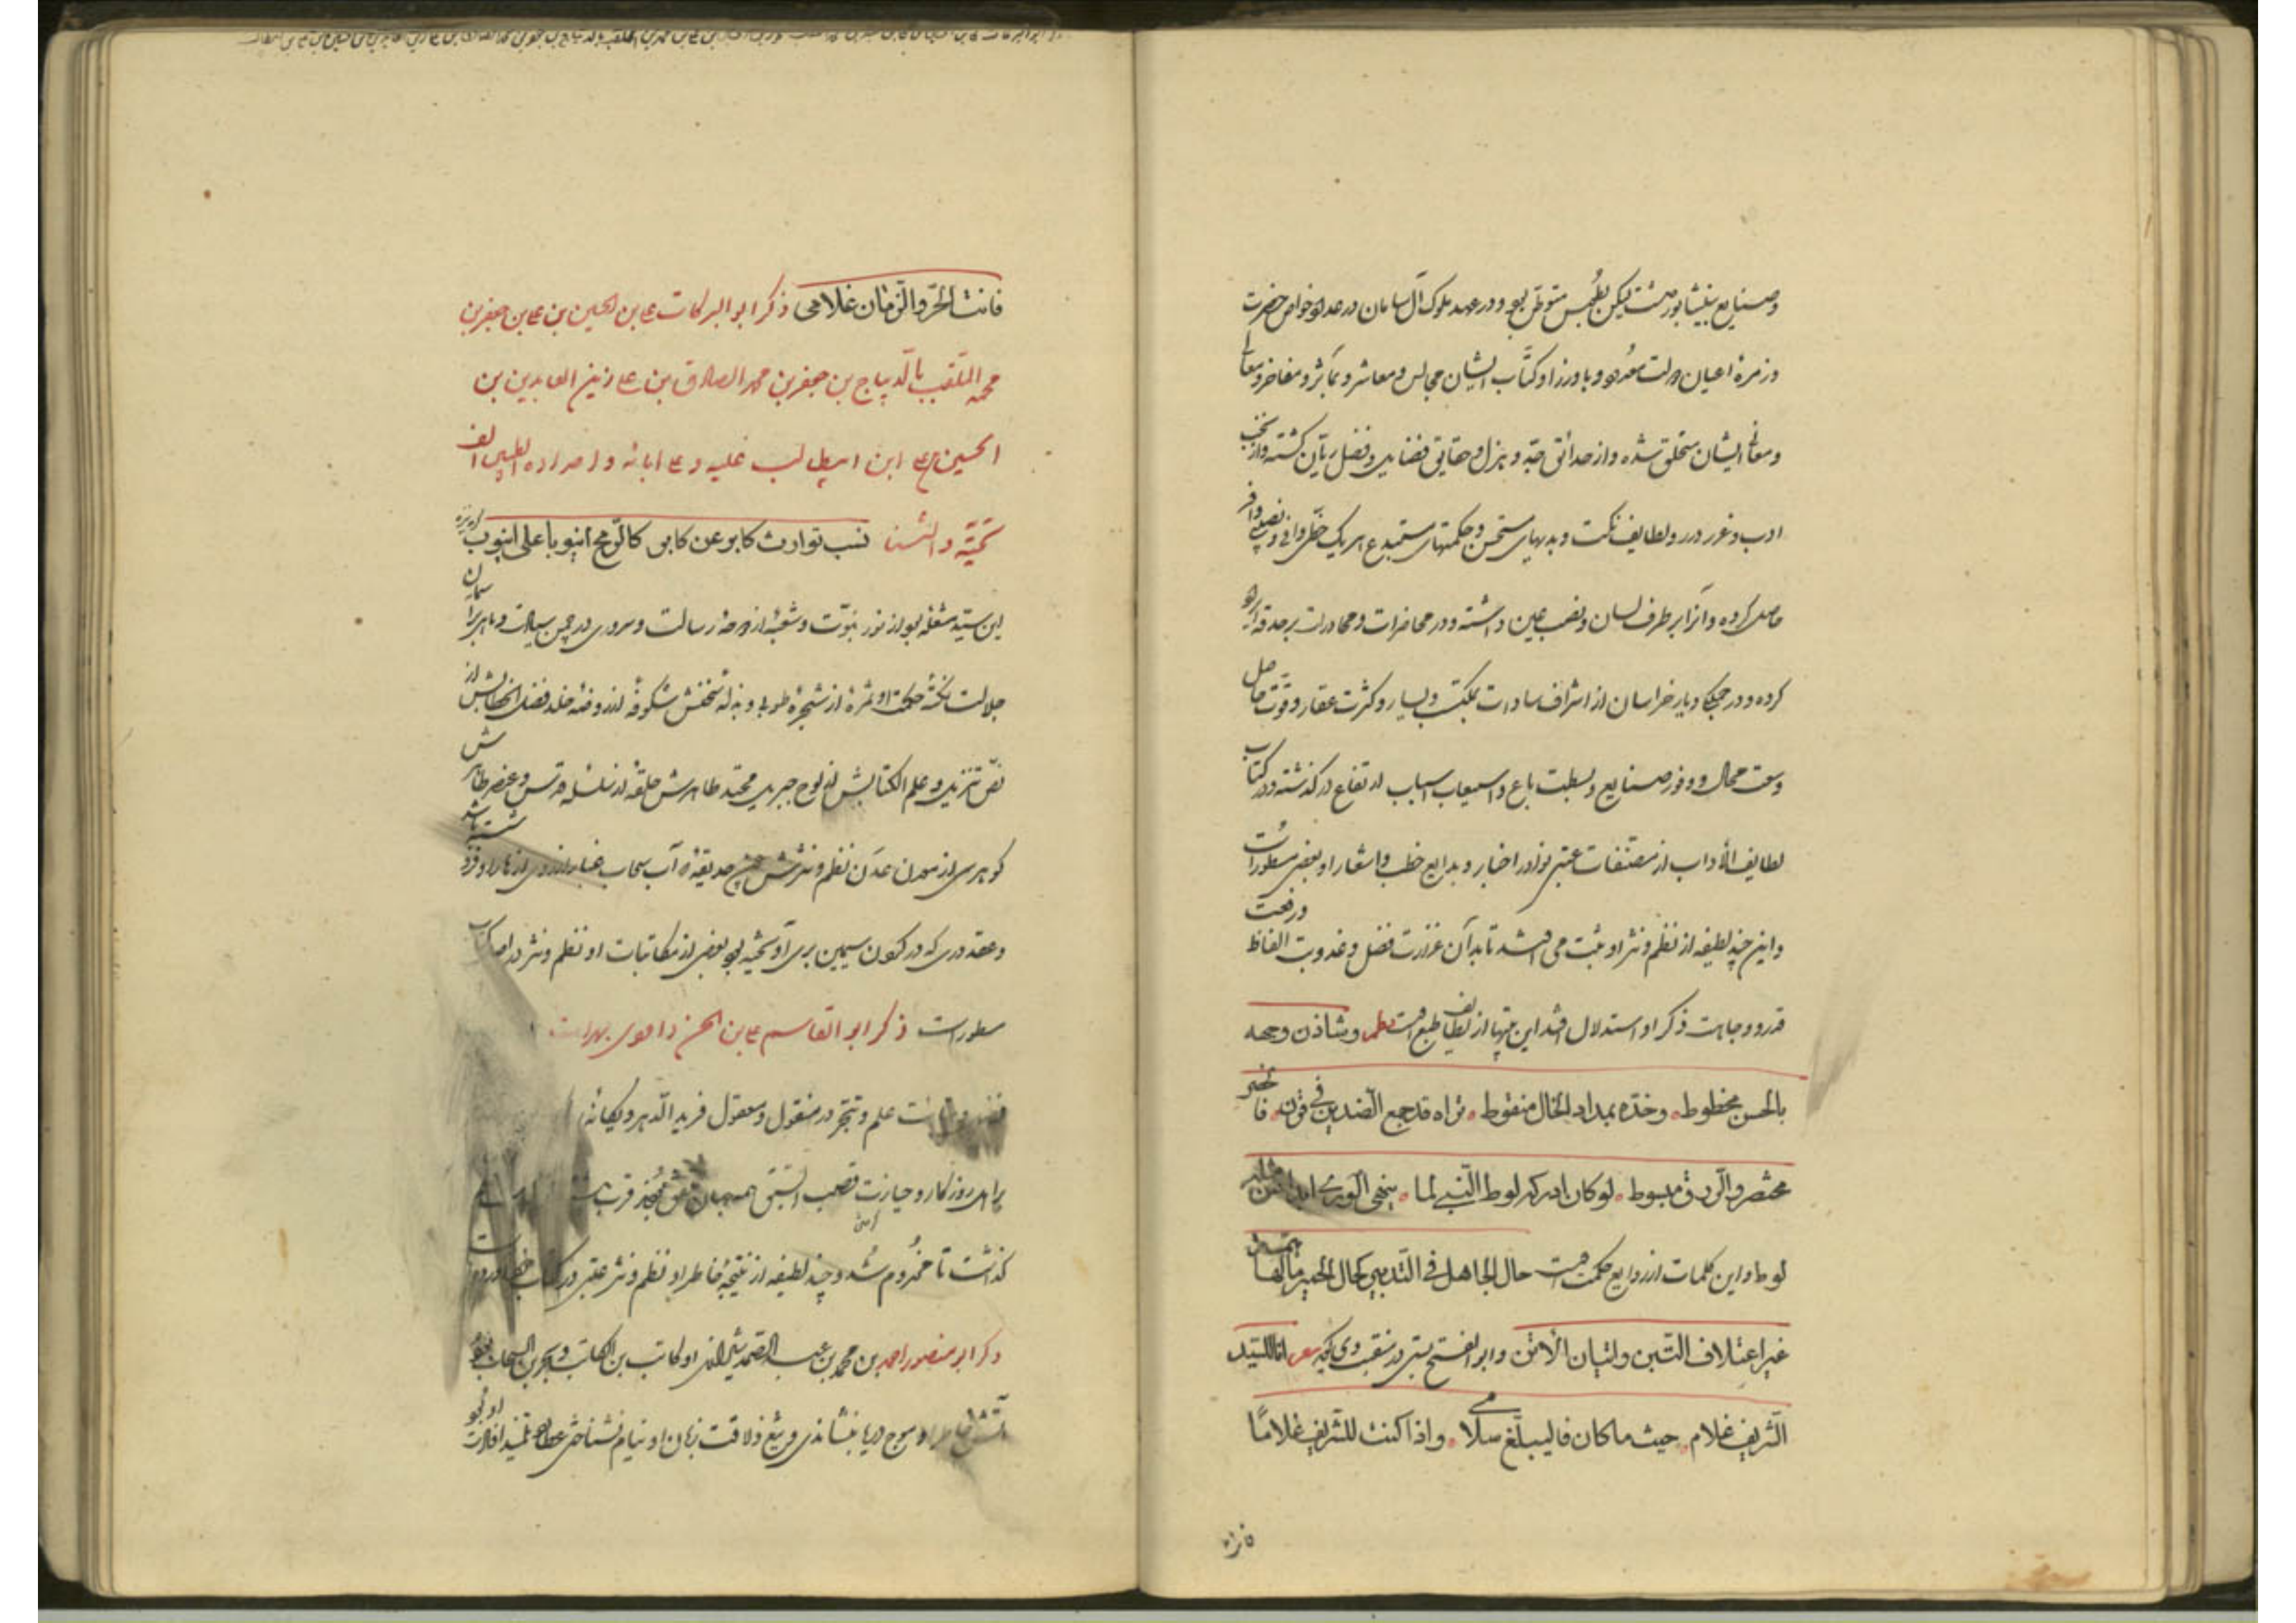 وصنایع بنیشابور داشت لیکن بطبس متوطن بود و در عهد ملوک آل سامان در عداد خواص حضرت
و زمرهٔ اعیان دولت معدود و با وزرا و کتّاب ایشان مجالس و معاشر و بمآثر و مفاخر و معالی
و معانی ایشان متخلق شده و از حدائق جدّ و هزل و حقایق فضایل و فضل ریّان گشته و از نخب
ادب و غرر و درر و لطایف نکت و بدیهای مستحسن و حکمتهای مستبدع هر یک حظّی وافی و نصیبی وافر
حاصل کرده و آنرا بر طرف لسان و نصب عین داشته و در محاضرات و محاورات بر حدقه ایراد
کرده و در جملگی دیار خراسان از اشراف سادات بمکنت و یسار و کثرت عقار و قوّت حال
وسعت مجال و وفور صنایع و بسطت باع و استیعاب اسباب ارتفاع درگذشته و در کتاب
لطایف الآداب از مصنفات عتبی نوادر اخبار و بدایع خطب و اشعار او بعضی مسطور است
و این چند لطیفه از نظم و نثر او ثبت می افتد تا بدآن غزارت فضل و عذوبت الفاظ و رفعت
قدر و وجاهت ذکر او استدلال افتد این بیتها از لطایف طبع اوست نظم وشادن وجهه
بالحسن مخطوط وخدّه بمداد الخال منقوط تراه قد جمع الضدین فی قرن فالخصر
مختصر والردف مبسوط لو کان ادرکه لوط النبی لما ینهی الوری ابدا عن مثله
لوط و این کلمات از ودایع حکمت اوست حال الجاهل فی التدبیر کحال الحمیر مالها همّة
غیر اعتلاف التبن و اتیان الأتن و ابو الفتح بستی در منقبت وی گوید شعر انا للسّید
الشریف غلام حیث ما کان فلیبلّغ سلامی واذا کنت للشریف غلامًا
فانت
فانت الحرّ والزّمان غلامی ذکر ابو البرکات علی بن الحسین بن علی بن جعفر بن
محمد الملّقب بالدّیباج بن جعفر بن محمد الصادق بن علی زین العابدین بن
الحسین بن علی ابن ابیطالب علیه و علی ابائه و اولاده الطیبین الف
تحیّة والثنا نسب توارث کابر عن کابر کالرّمح انبوبا علی انبوب
این سیّد شعلهٔ بود از نور نبوّت و شعبهٔ از دوحهٔ رسالت و سروی در چمن سیادت و ماهی بر آسمان
جلالت نکتهٔ حکمت او ثمرهٔ از شجرهٔ طوبی و بذلهٔ سخنش شکوفهٔ از روضهٔ خلد فصل الخطابش از
نصّ تنزیل و علم الکتابش از لوح جبریل محتد طاهرش حلقهٔ از سلسلهٔ قدس و عنصر ظاهرش
گوهری از معدن عدن نظم و نثرش چون حدیقهٔ که آب سحاب غبار از روی ازهار او شسته باشد
و عقد دری که در گردن سیمین بری آویخته بود بعضی از مکاتبات او نظم و نثر در اصل کتاب
مسطور است ذکر ابو القاسم علی بن الحسن داودی بهرات
علم و تبحّر در منقول و معقول فرید الدّهر و یگانه
بر اهل روزگار و حیازت قصب السبق قرب
گذشت تا مخدوم شد و چند لطیفه از نتیجهٔ خاطر او نظم و نثر عتبی در کتاب
ذکر ابو منصور احمد بن محمد بن عبد الصمد شیرازی او کاتب بن الکاتب و بحر بن السحاب بود
آتش خاطر او موج دریا بنشاندی و تیغ ذلاقت زبان او نیام نشناختی عطارد تلمیذ افادت او بود